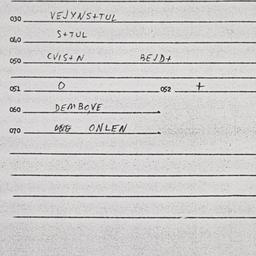 030 VEJYNS+TUL
040 S+TUL
050 CVIS+N BEJD+
051 O 052 +
060 DEMBOVE
070 ONLEN